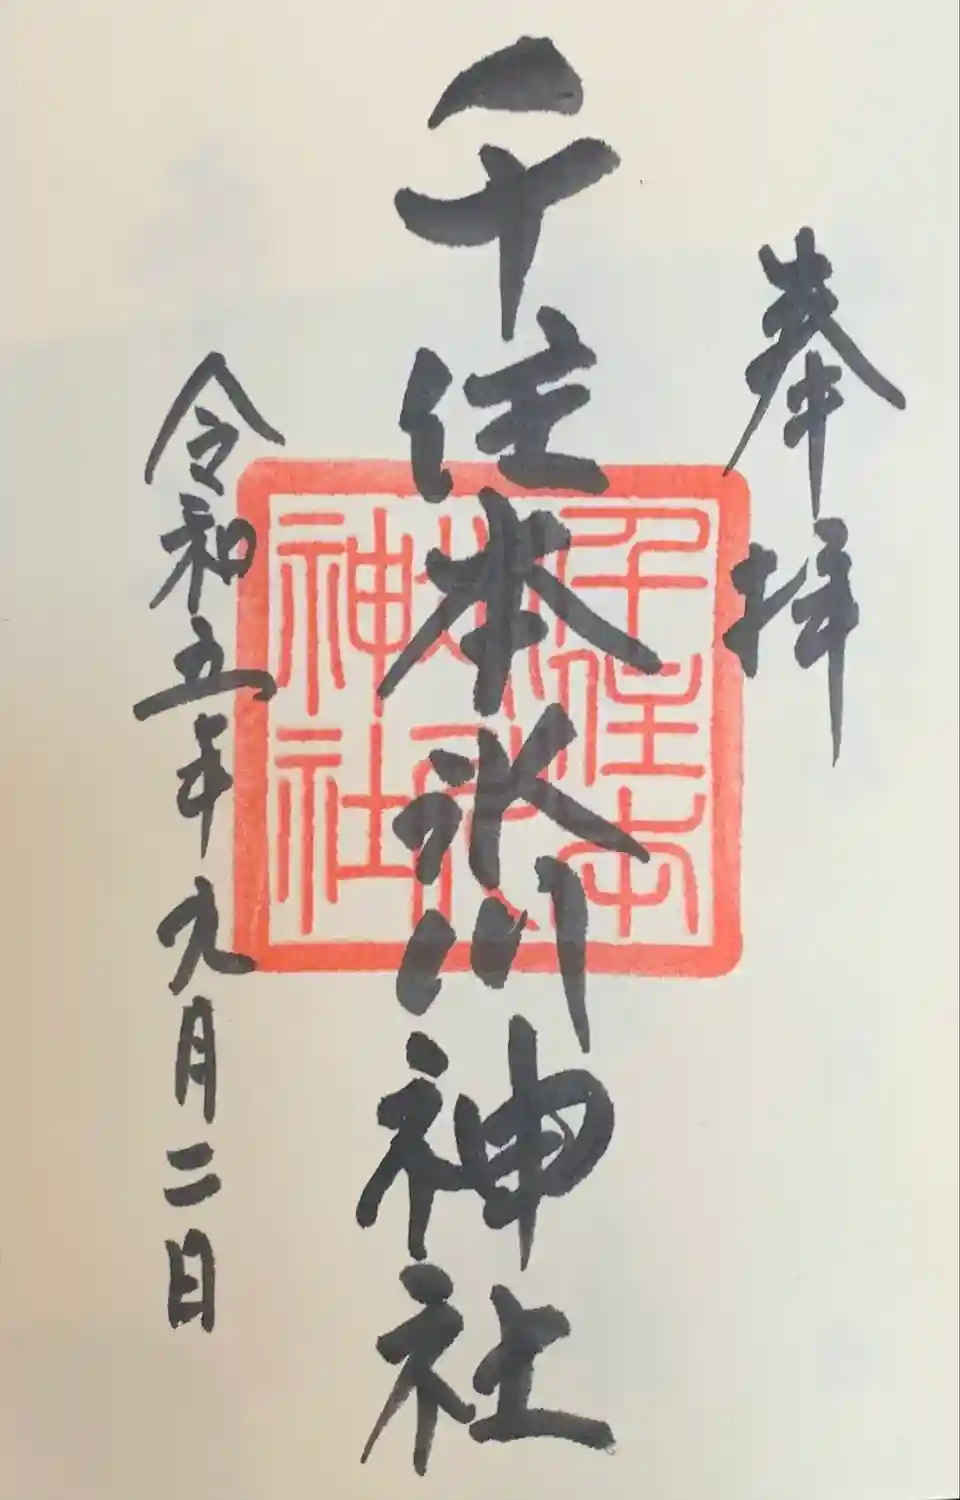 奉拝
千住本氷川神社
千住本
氷川
神社
令和五年九月二日